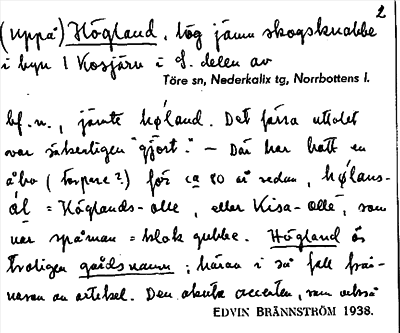 2
(uppå) Högland, hög jämn skogsknabbe
i byn i Kosjärv i S. delen av
Töre sn, Nederkalix tg, Norrbottens l.
bf. n., jämte høland. Det förra uttalet
var säkerligen "gjort." – Där har hatt en
åbo (torpare?) för ca 80 år sedan, hølans-
ól = Höglands-olle, eller Kisa-olle, som
var spåman = klok gubbe. Högland är
troligen gårdsnamn; härav i så fall från-
varon av artikel. Den akuta accenten, som också
EDVIN BRÄNNSTRÖM 1938.